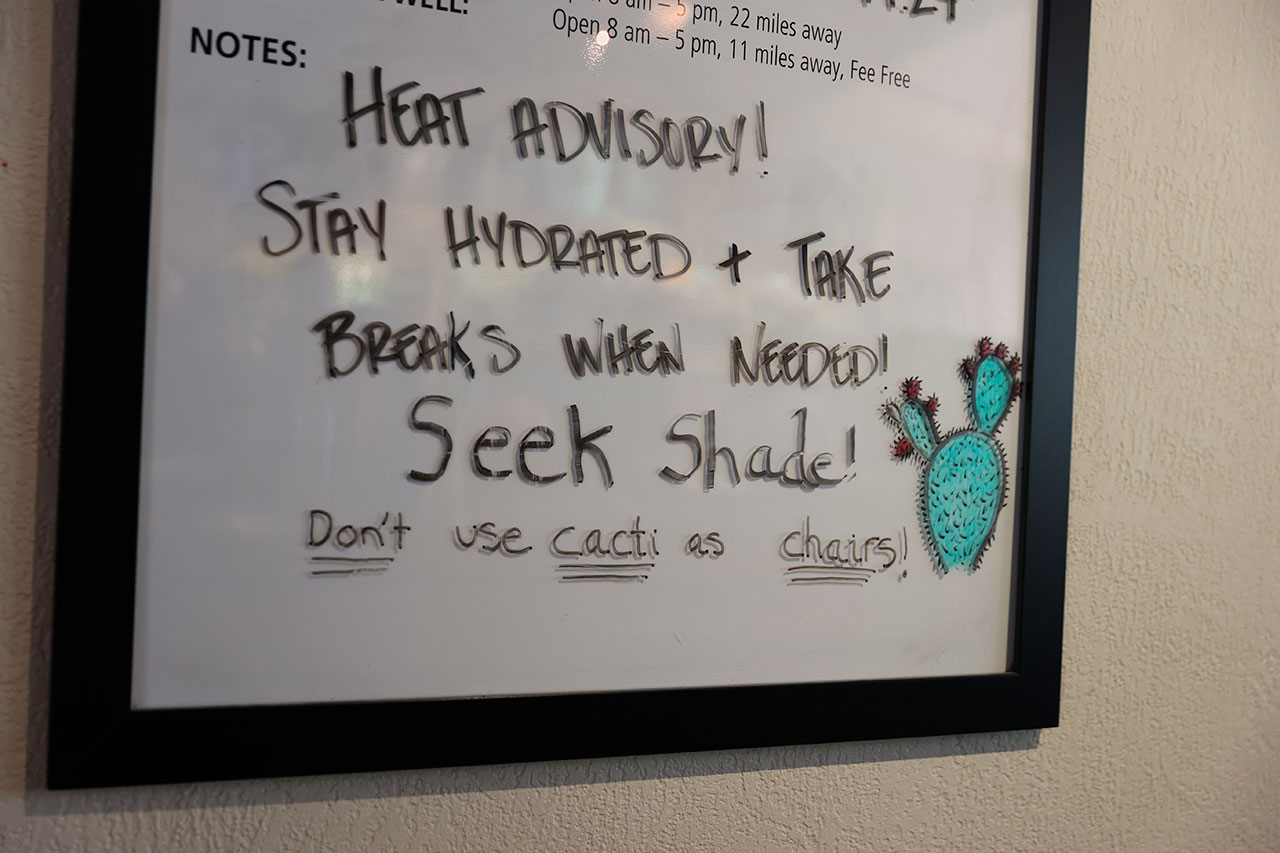 WELL:
8 am – 5 pm, 22 miles away
Open 8 am – 5 pm, 11 miles away, Fee Free
NOTES:
HEAT ADVISORY!
STAY HYDRATED + TAKE
BREAKS WHEN NEEDED!
Seek Shade!
Don't use cacti as chairs!!